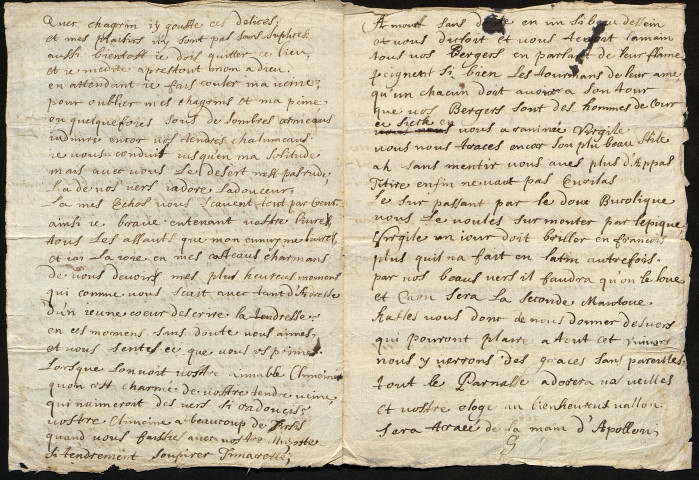 chagrin i'y goutte ces delices;
et mes plaisirs n'y sont pas sans suplices
aussi bientost ie dois quitter ce lieu,
et ie medite apres tout mon a dieu.
en attendant ie fais couler ma veine;
pour oublier mes chagrins et ma peine
ou quelquefois sous de sombres ormeaux
iadmire encor vos tendres chalumeaux.
ie vous conduit iusqu'en ma solitude
mais avec vous le desert n'est pas rude
la de vos vers iadore la douceur.
la mes Echos vous sçavent tout par coeur.
ainsi ie brave en tenant vostre livre
tous les assauts que mon ennuy me livre,
et iay la ioye en mes costeaux charmans
de vous devoir mes plus heureux momens
qui comme vous scait avec tant d'Adresse
d'un ieune coeur descrire la tendresse.
en ces momens sans doute vous aimes,
et vous sentes ce que vous exprimes.
Lorsque lon voit vostre aimable Climene
quon est charmé de vostre tendre veine
qui n'aimeroit des vers si radoucis;
vostre Climene a beaucoup de
quand vous faittes avec vostre
si tendrement soupirer Timarette;
Amour sans doute en un si beau dessein
et vous dictoit et vous tenoit la main
tous vos Bergers en parlant de leur flame
peignent si bien les tourmans de leur ame,
qu'un chacun doit avouer a son tour
que vos Bergers sont des hommes de Cour
ce siecle en
vous a ranimee Virgile
vous nous traces encor son plus beau stile
ah sans mentir vous aves plus d'Appas
Titire enfin ne vaut pas Curilas
le surpassant par le doux Bucolique
vous le voules surmonter par lepique
Virgile un iour doit briller en francois
plus quil na fait en latin autrefois.
par nos beaux vers il faudra qu'on le loue
et Caen sera la seconde Mantoue
hastes vous donc de nous donner des vers
qui pourront plaire a tout cet univers
nous y verrons des graces sans pareilles
tout le Parnasse adorera vos veilles
et vostre eloge au bienheureux vallon
sera tracé de la main d'Apollon;